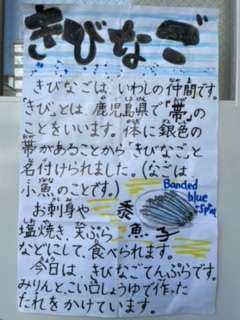 きびなご
きびなごは、いわしの仲間です。
「きび」とは、鹿児島県で「帯」の
ことをいいます。体に銀色の
帯があることから「きびなご」と
名付けられました。(なごは
小魚のことです。)
お刺身や
塩焼き、天ぷら
などにして、食べられます。
黍魚子
Banded
blue
Sprat
今日は、きびなごてんぷらです。
みりんと、こい口しょうゆで作った
たれをかけています。